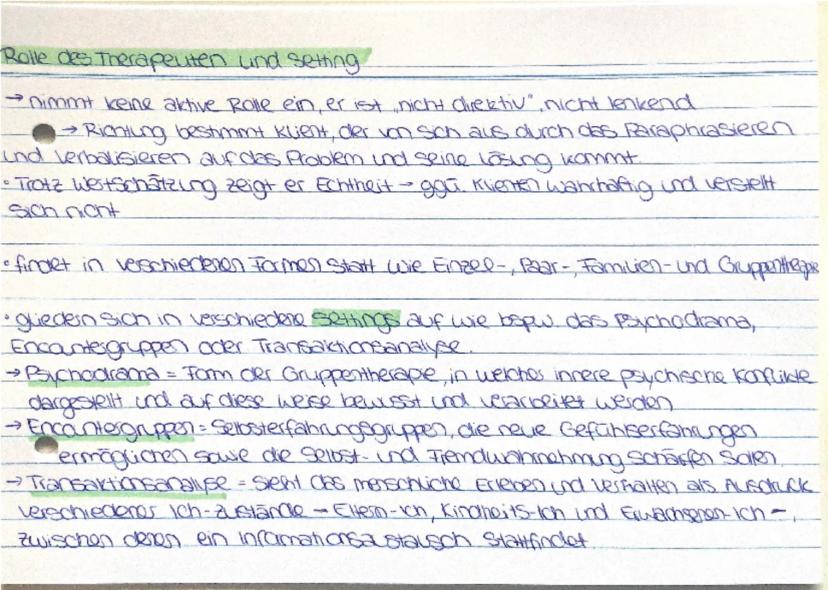 Rolle des Therapeuten und Setting
→ nimmt keine aktive Rolle ein, er ist „nicht direktiv", nicht lenkend
→ Richtung bestimmt Klient, der von sich aus durch das Paraphrasieren
und Verbalisieren auf das Problem und seine Lösung kommt.
• Trotz Wertschätzung zeigt er Echtheit → ggü. Klienten wahrhaftig und verstellt
sich nicht
• findet in verschiedenen Formen statt wie Einzel-, Paar-, Familien- und Gruppentherapie
• gliedern sich in verschiedene Settings auf wie bspw. das Psychodrama,
Encountergruppen oder Transaktionsanalyse.
→ Psychodrama = Form der Gruppentherapie, in welcher innere psychische Konflikte
dargestellt und auf diese Weise bewusst und verarbeitet werden
→ Encountergruppen = Selbsterfahrungsgruppen, die neue Gefühlserfahrungen
ermöglichen sowie die Selbst- und Fremdwahrnehmung schärfen sollen.
→ Transaktionsanalyse = sieht das menschliche Erleben und Verhalten als Ausdruck
verschiedener Ich-Zustände – Eltern-Ich, Kindheits-Ich und Erwachsenen-Ich –,
zwischen denen ein Informationsaustausch stattfindet.